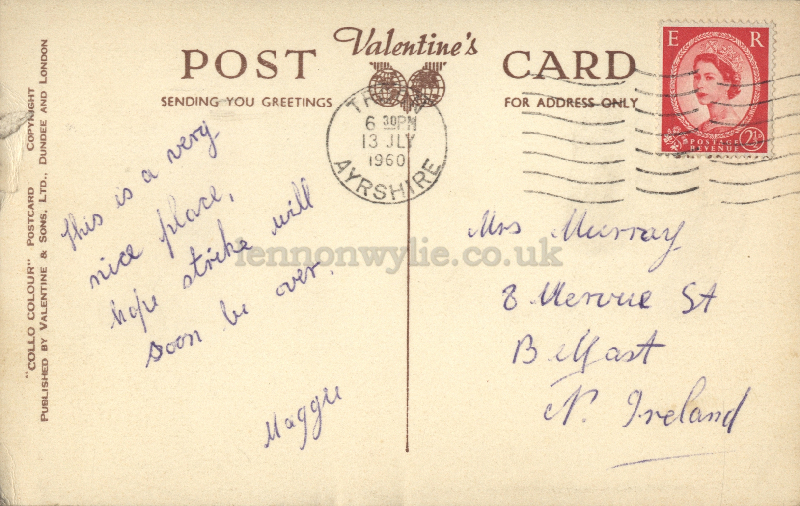 POST Valentine's CARD
SENDING YOU GREETINGS FOR ADDRESS ONLY
"COLLO COLOUR" POSTCARD COPYRIGHT
PUBLISHED BY VALENTINE & SONS, LTD., DUNDEE AND LONDON
6 30PM
13 JLY
1960
AYRSHIRE
E R
POSTAGE
REVENUE
2½
This is a very
nice place,
hope strike will
soon be over.
Maggie
Mrs Murray
8 Mervue St
Belfast
N. Ireland
lennonwylie.co.uk